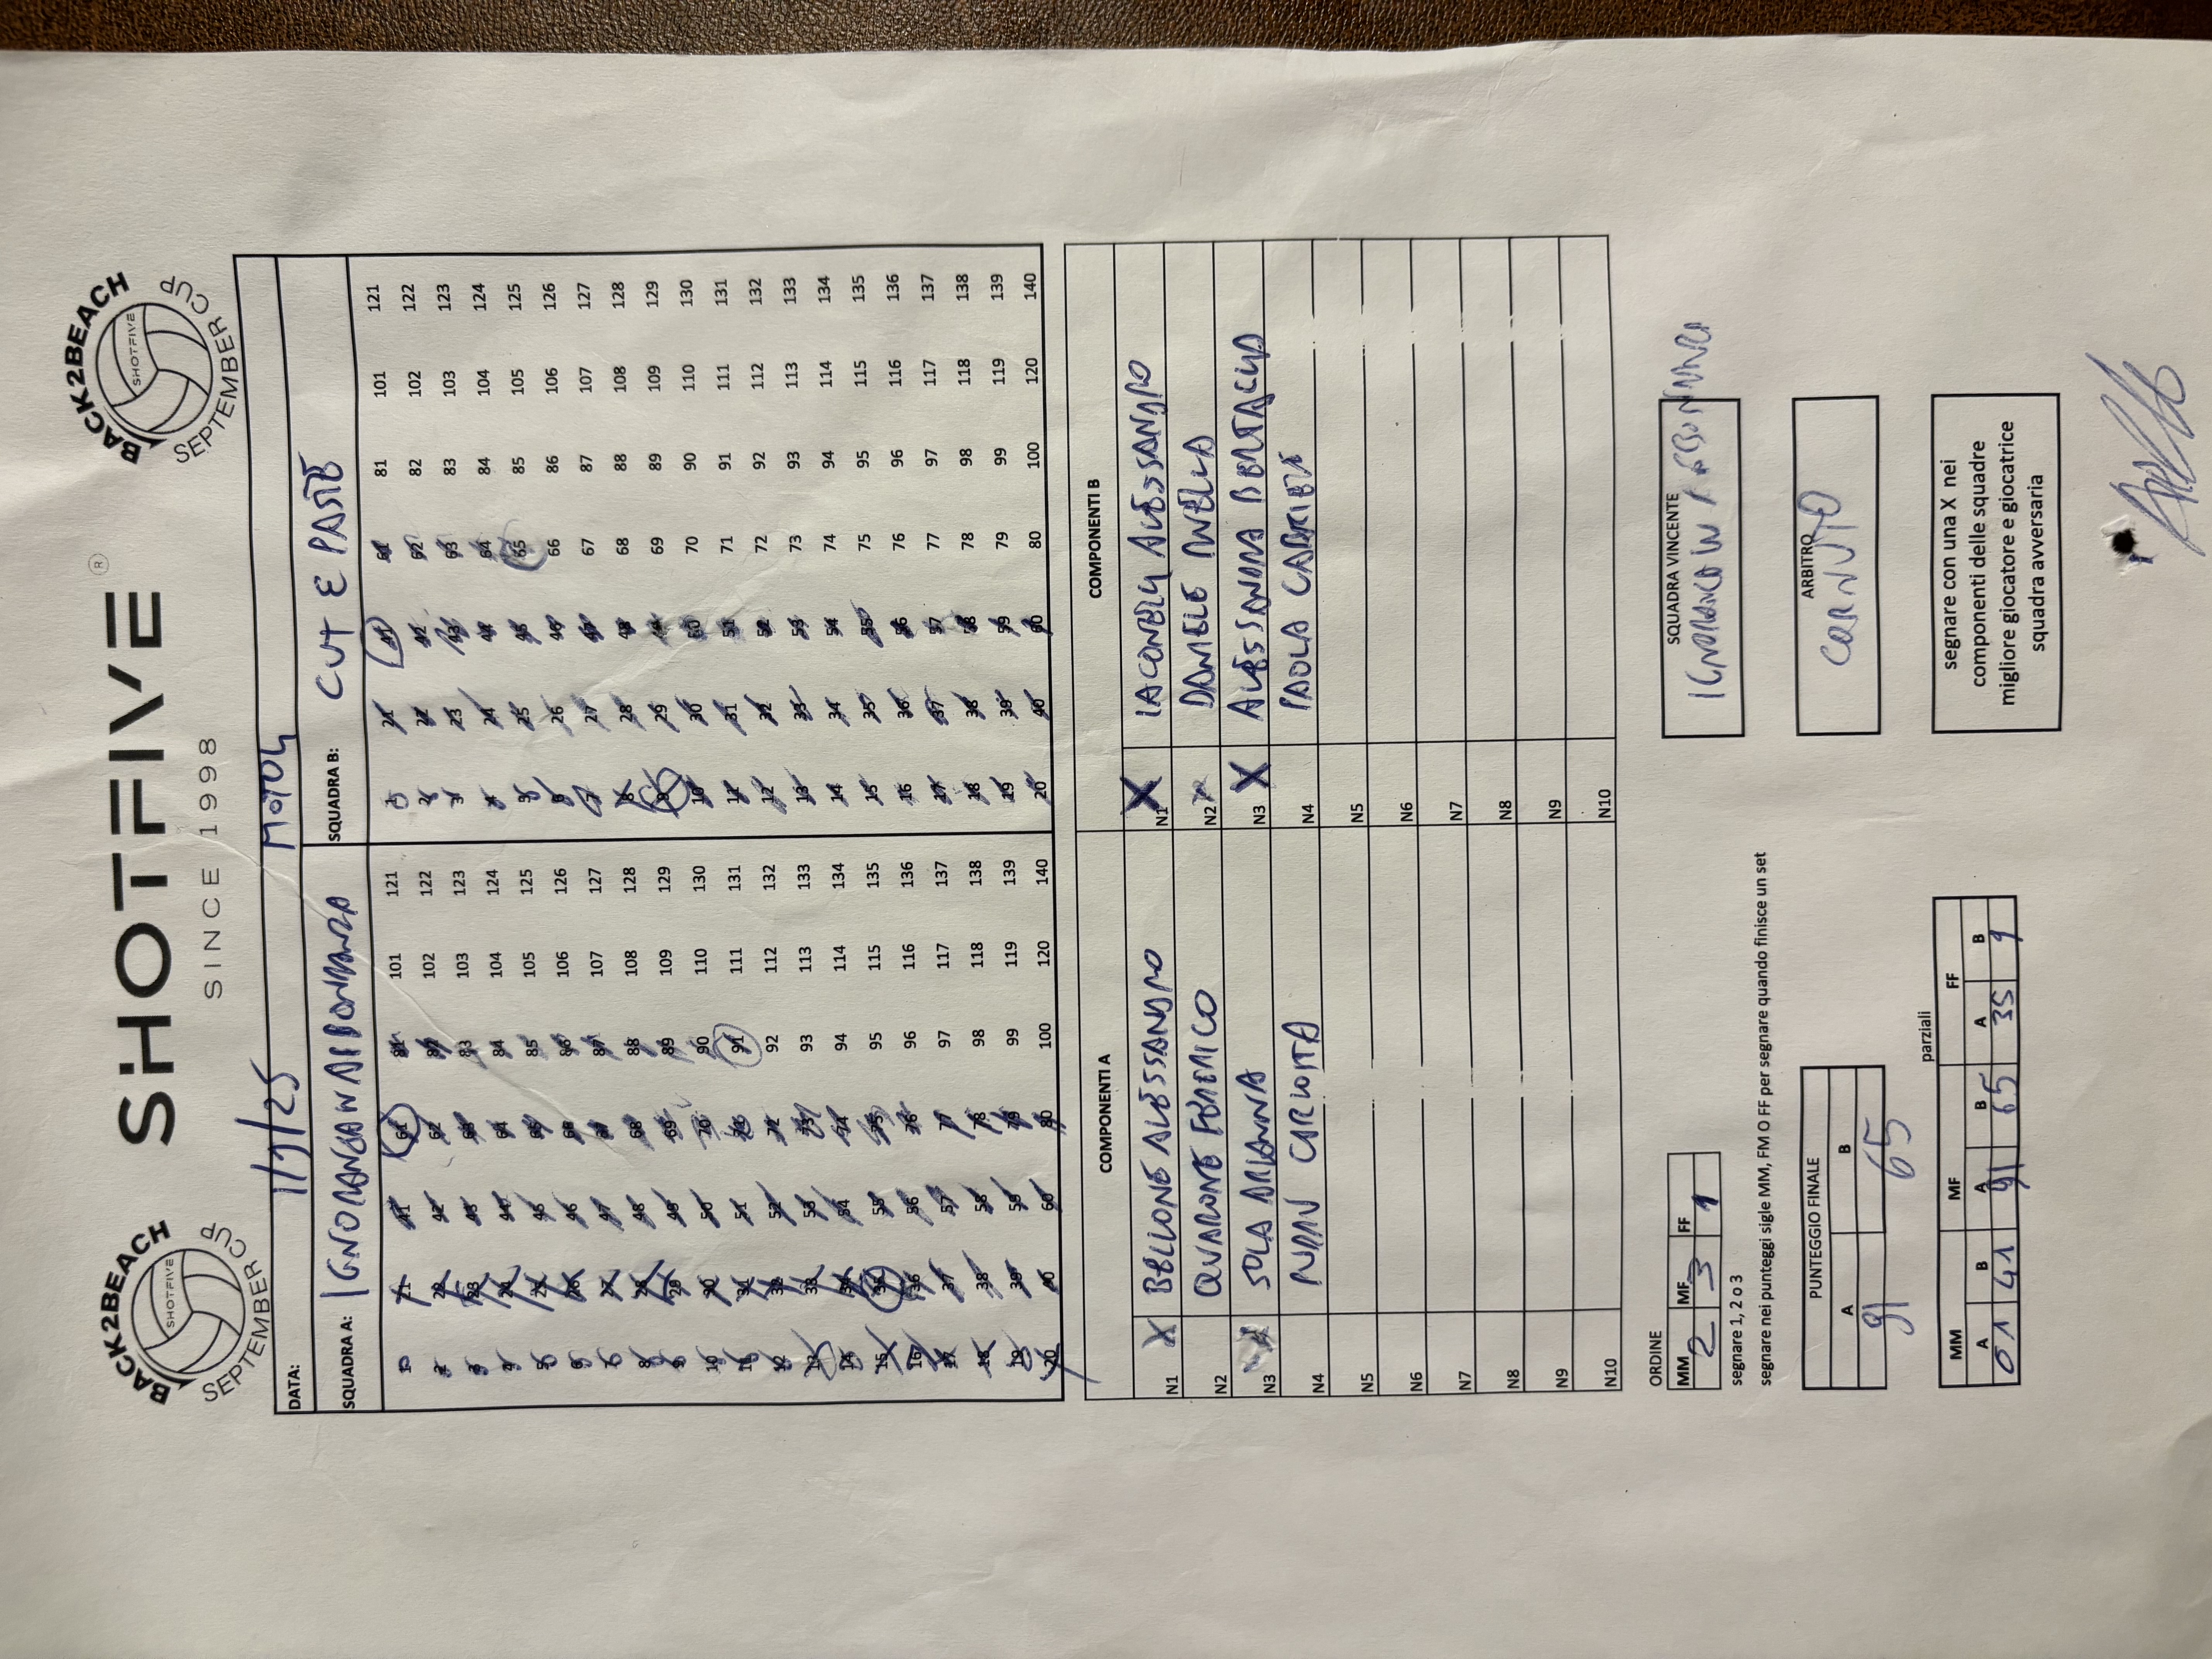 BACK2BEACH
SHOTFIVE
SEPTEMBER CUP
SHOTFIVE ®
SINCE 1998
BACK2BEACH
SHOTFIVE
SEPTEMBER CUP
DATA: 1/9/25
SQUADRA A:
SQUADRA B: CUT E PASTE
1 21 41 61 81 101 121 1 21 41 61 81 101 121
2 22 42 62 82 102 122 2 22 42 62 82 102 122
3 23 43 63 83 103 123 3 23 43 63 83 103 123
4 24 44 64 84 104 124 4 24 44 64 84 104 124
5 25 45 65 85 105 125 5 25 45 65 85 105 125
6 26 46 66 86 106 126 6 26 46 66 86 106 126
7 27 47 67 87 107 127 7 27 47 67 87 107 127
8 28 48 68 88 108 128 8 28 48 68 88 108 128
9 29 49 69 89 109 129 9 29 49 69 89 109 129
10 30 50 70 90 110 130 10 30 50 70 90 110 130
11 31 51 71 91 111 131 11 31 51 71 91 111 131
12 32 52 72 92 112 132 12 32 52 72 92 112 132
13 33 53 73 93 113 133 13 33 53 73 93 113 133
14 34 54 74 94 114 134 14 34 54 74 94 114 134
15 35 55 75 95 115 135 15 35 55 75 95 115 135
16 36 56 76 96 116 136 16 36 56 76 96 116 136
17 37 57 77 97 117 137 17 37 57 77 97 117 137
18 38 58 78 98 118 138 18 38 58 78 98 118 138
19 39 59 79 99 119 139 19 39 59 79 99 119 139
20 40 60 80 100 120 140 20 40 60 80 100 120 140
COMPONENTI A COMPONENTI B
N1 X BELLIONE ALESSANDRO N1 X IACONELLI ALESSANDRO
N2 QUARONE FEDERICO N2 X DANIELE
N3 SOLA ARIANNA N3 X ALESSANDRA BERTACHA
N4 CARLOTTA N4 PAOLA
N5 N5
N6 N6
N7 N7
N8 N8
N9 N9
N10 N10
ORDINE
MM MF FF
2 3 1
segnare 1, 2 o 3
segnare nei punteggi sigle MM, FM O FF per segnare quando finisce un set
SQUADRA VINCENTE
PUNTEGGIO FINALE
A B
91 65
ARBITRO
CORNUTO
parziali
MM MF FF
A B A B A B
41 91 65 35 9
segnare con una X nei
componenti delle squadre
migliore giocatore e giocatrice
squadra avversaria